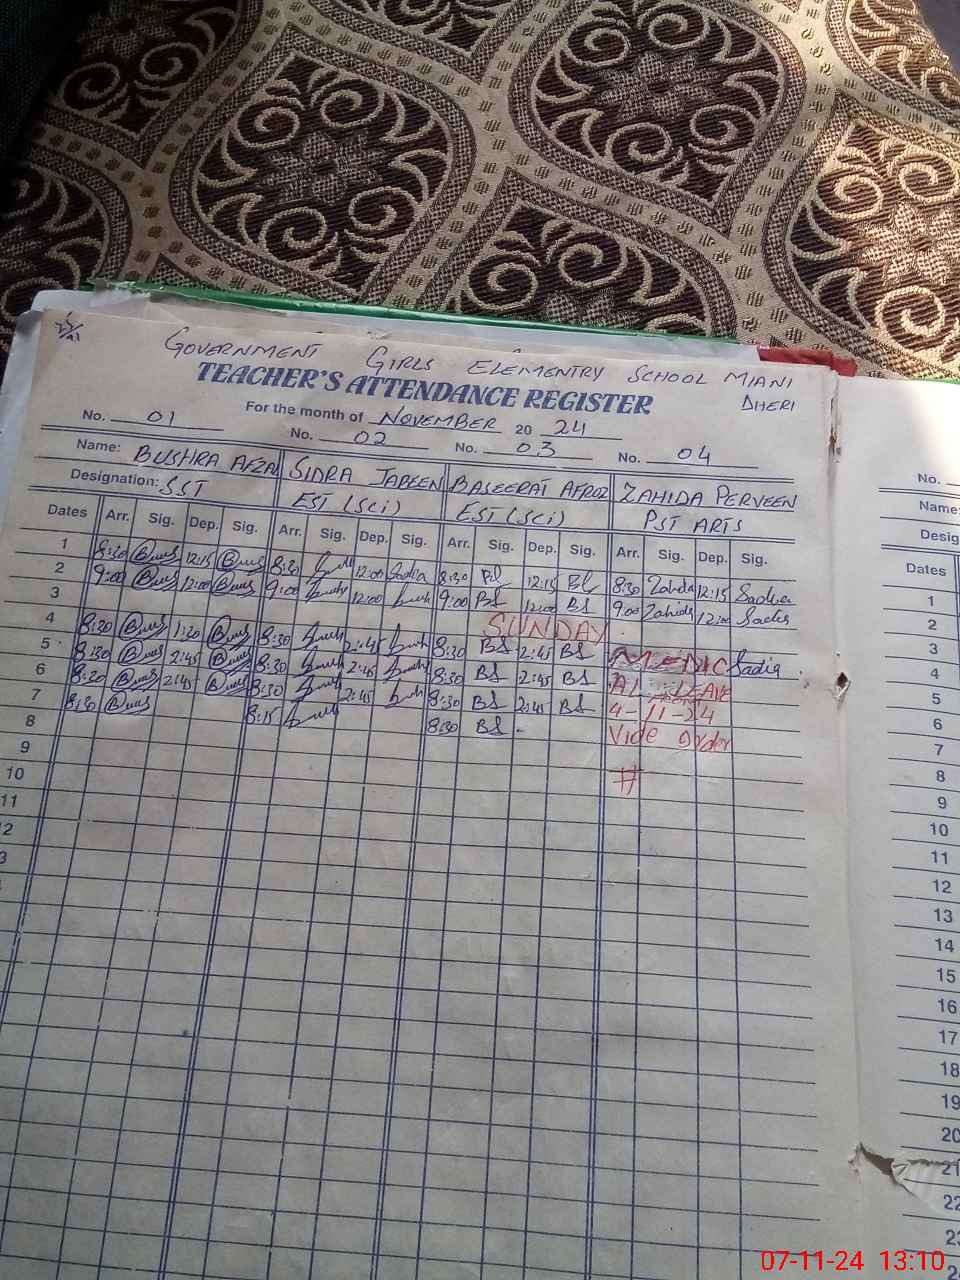 GOVERNMENT GIRLS ELEMENTRY SCHOOL MIANI
DHERI
TEACHER'S ATTENDANCE REGISTER
For the month of NOVEMBER 20 24
No. 01 No. 02 No. 03 No. 04
Name: BUSHRA AFZAL SIDRA JABEEN BASEERAT AFROZ ZAHIDA PERVEEN
Designation: SST EST (Sci) EST (Sci) PST ARTS
Dates Arr. Sig. Dep. Sig. Arr. Sig. Dep. Sig. Arr. Sig. Dep. Sig. Arr. Sig. Dep. Sig.
1 8:30 12:15 8:30 12:00 Sadia 8:30 BS 12:15 BS 8:30 Zahida 12:15 Sadia
2 9:00 12:00 9:00 12:00 9:00 BS 12:00 BS 9:00 Zahida 12:00 Sadia
3 SUNDAY
4 8:30 1:30 8:30 2:45 8:30 BS 2:45 BS MEDIC Sadia
5 8:30 2:45 8:30 2:45 8:30 BS 2:45 BS AL LEAVE
6 8:30 2:45 8:30 2:45 8:30 BS 2:45 BS 4-11-24
7 8:30 8:15 8:30 BS Vide order
8 #
9
10
11
No.
Name:
Desig
Dates
1
2
3
4
5
6
7
8
9
10
11
12
13
14
15
16
17
18
19
20
21
22
07-11-24 13:10